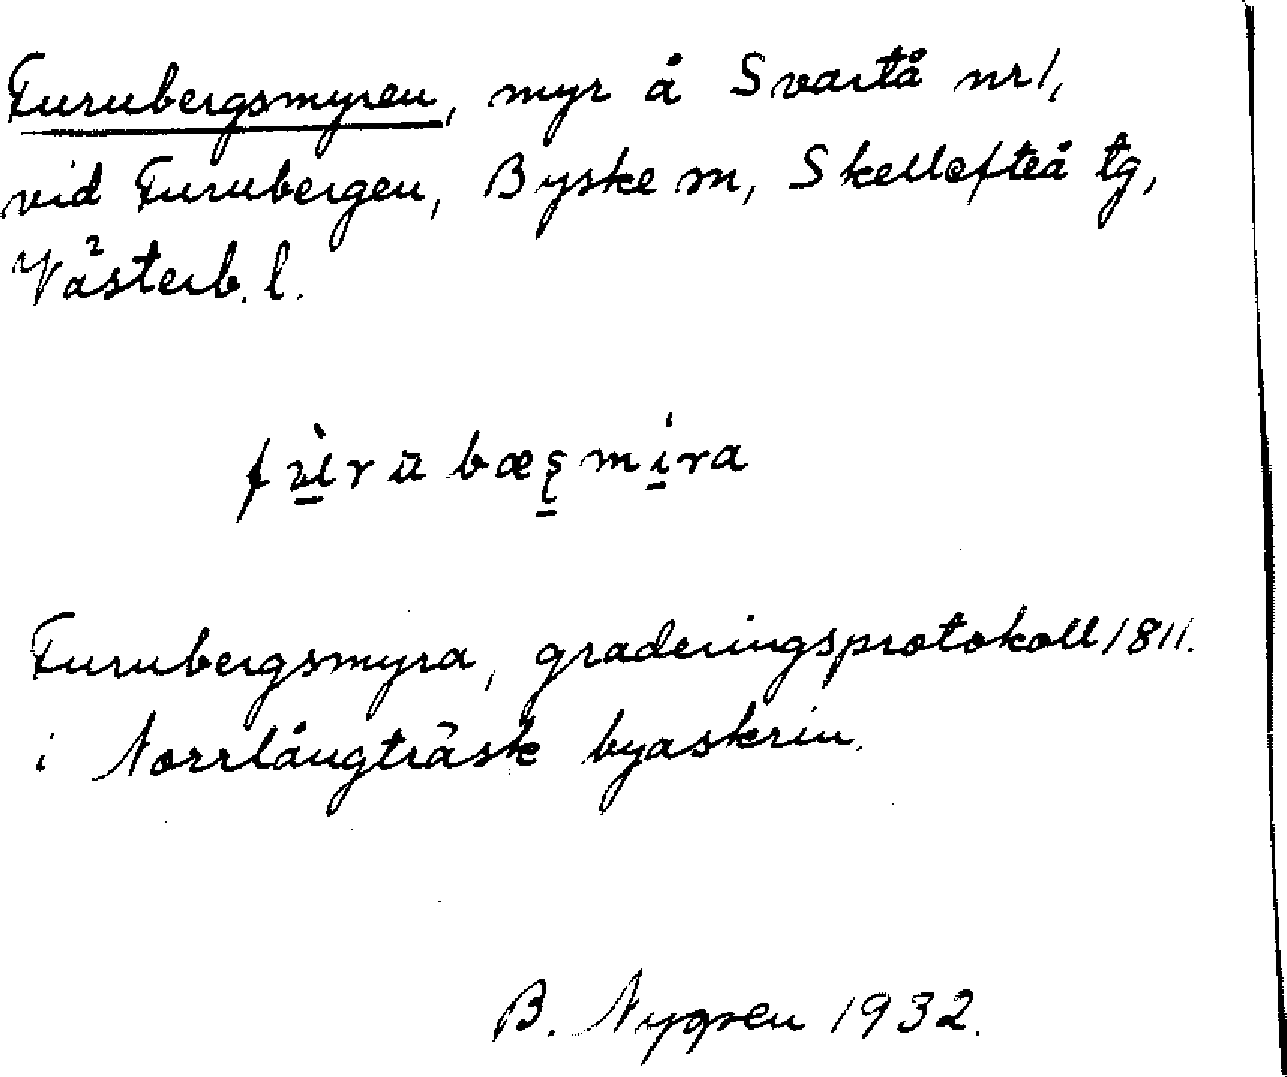 Furubergsmyren, myr å Svartå nr 1,
vid Furubergen, Byske sn, Skellefteå tg,
Västerb. l.
fù̱rŭbæʂ̱mí̱ra
Furubergsmyra, graderingsprotokoll 1811.
i Norrlångträsk byaskrin.
B. Nygren 1932.